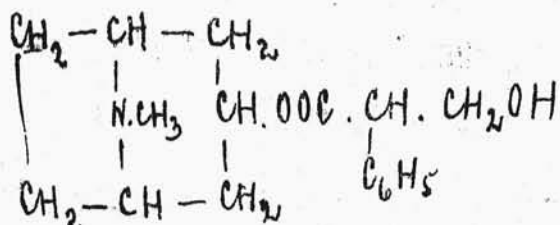 CH₂ — CH — CH₂
N.CH₃ CH. OOC . CH . CH₂OH
C₆H₅
CH₂ — CH — CH₂